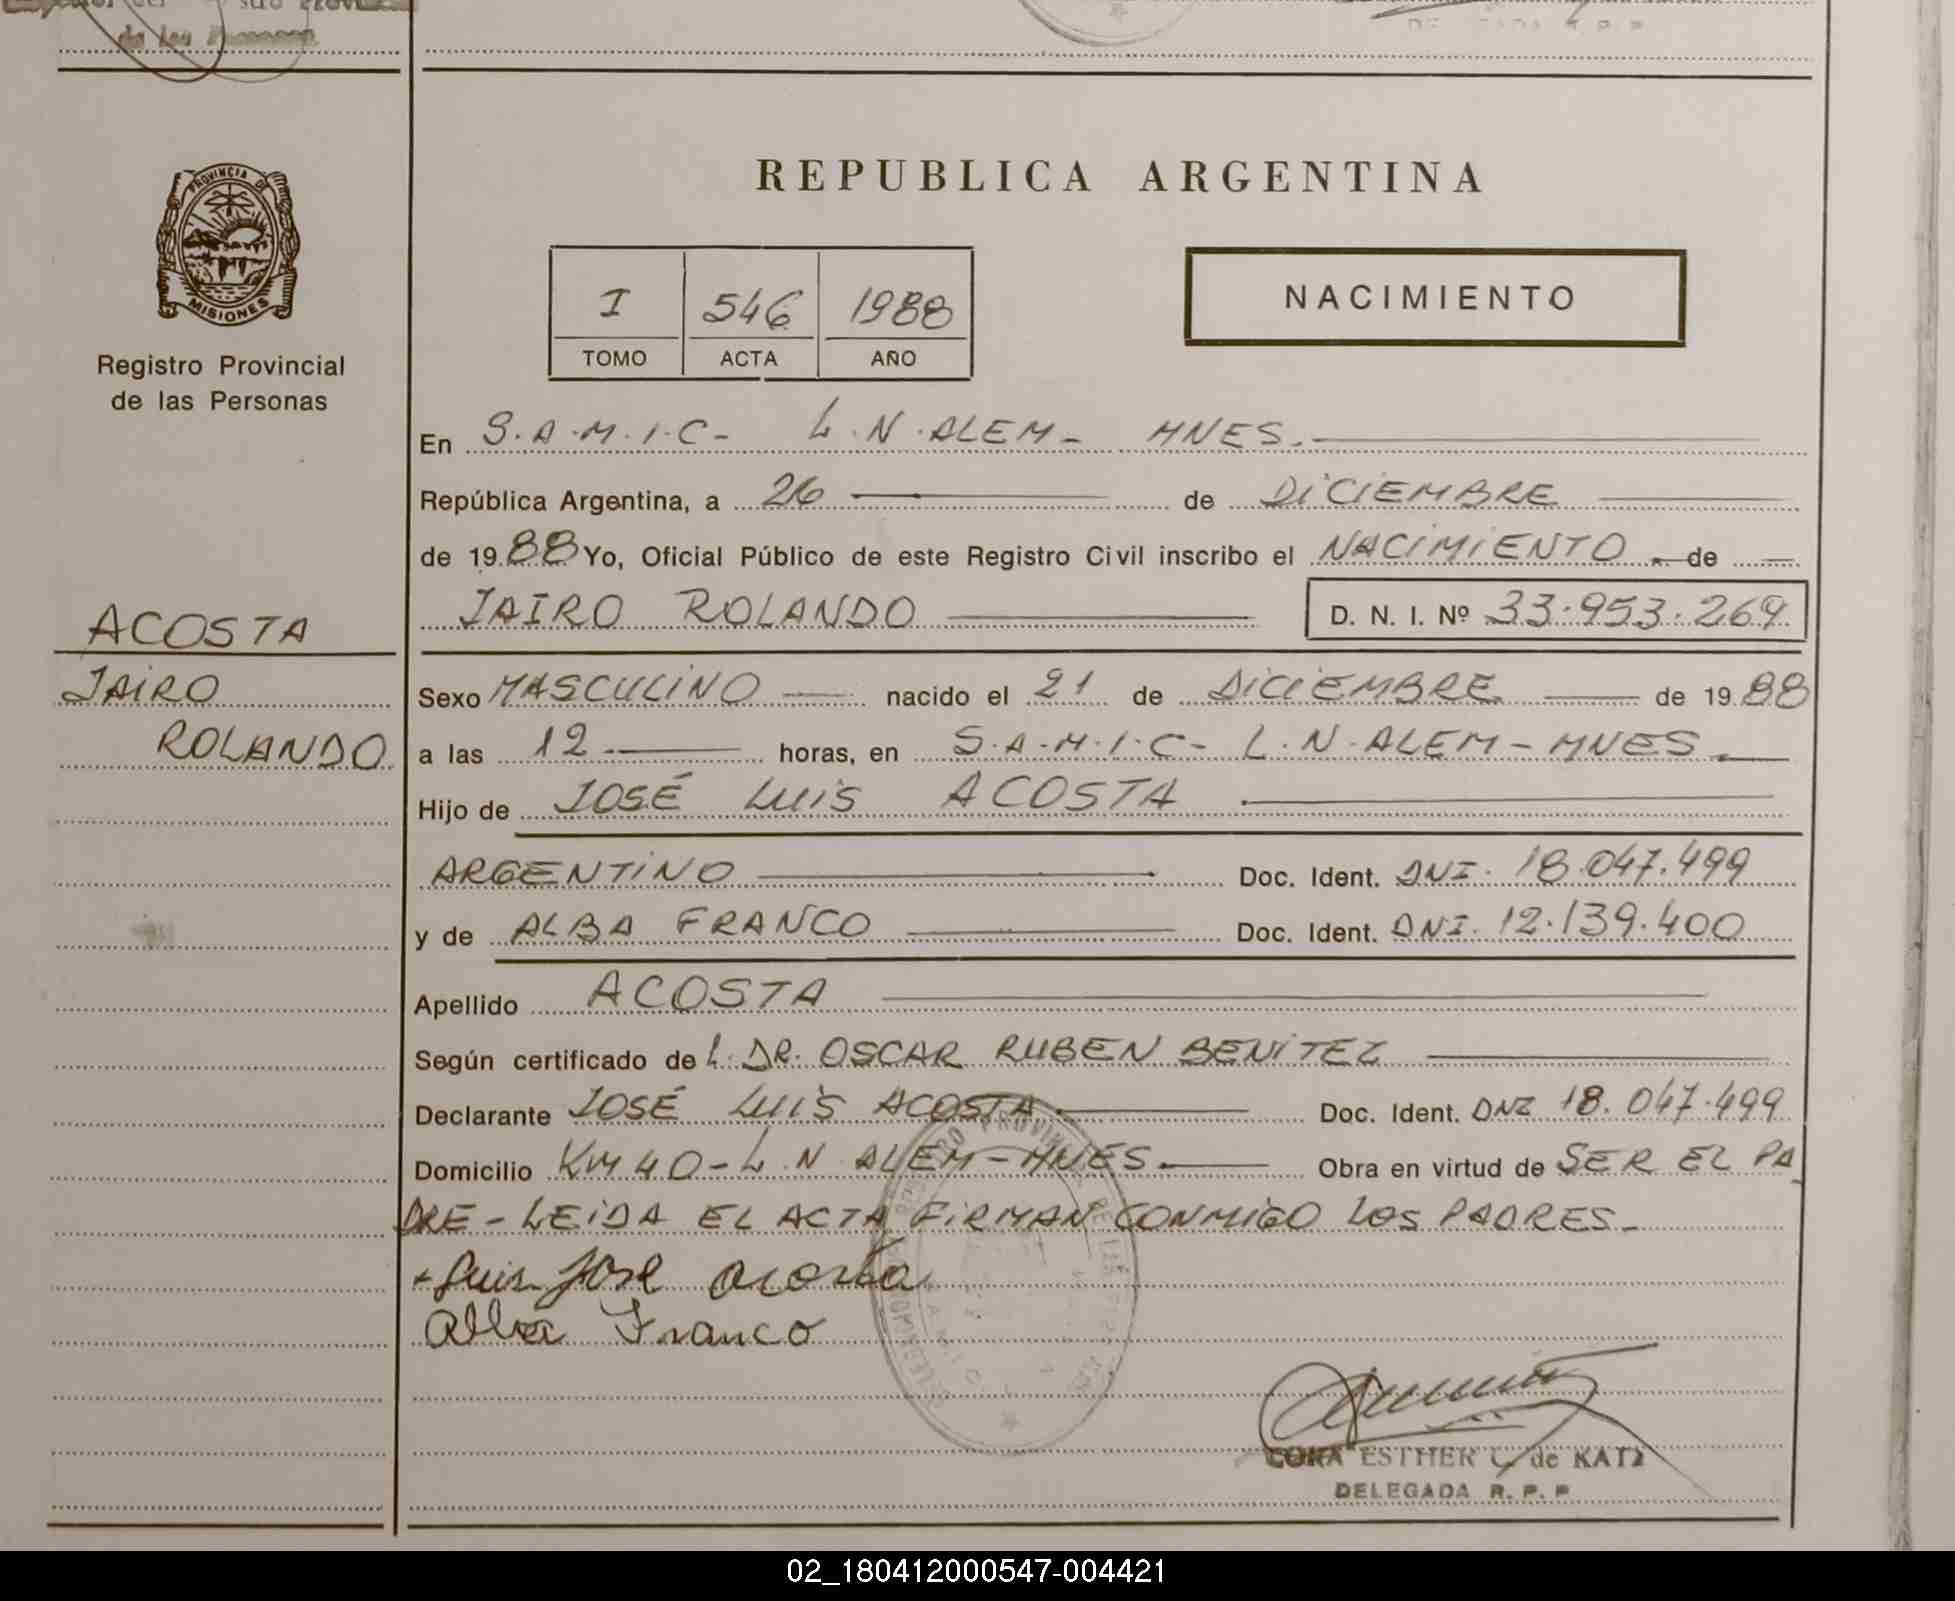 de las Personas
DELEGADA R.P.P
PROVINCIA DE
MISIONES
Registro Provincial
de las Personas
REPUBLICA ARGENTINA
I 546 1988
TOMO ACTA AÑO
NACIMIENTO
En S.A.M.I.C- L.N.ALEM- MNES.
República Argentina, a 26 de DICIEMBRE
de 1988 Yo, Oficial Público de este Registro Civil inscribo el NACIMIENTO.- de
JAIRO ROLANDO D. N. I. Nº 33.953.269
ACOSTA
JAIRO
ROLANDO
Sexo MASCULINO nacido el 21 de DICIEMBRE de 1988
a las 12 horas, en S.A.M.I.C- L.N.ALEM-MNES.
Hijo de JOSÉ LUIS ACOSTA
ARGENTINO Doc. Ident. DNI. 18.047.499
y de ALBA FRANCO Doc. Ident. DNI. 12.139.400
Apellido ACOSTA
Según certificado de L. DR. OSCAR RUBEN BENITEZ
Declarante JOSÉ LUIS ACOSTA Doc. Ident. DNI 18.047.499
Domicilio KM 40-L.N ALEM-MNES. Obra en virtud de SER EL PA
DRE - LEIDA EL ACTA FIRMAN CONMIGO LOS PADRES-
Luis José Acosta
Alba Franco
CORA ESTHER C. de KATZ
DELEGADA R. P. P
02_180412000547-004421